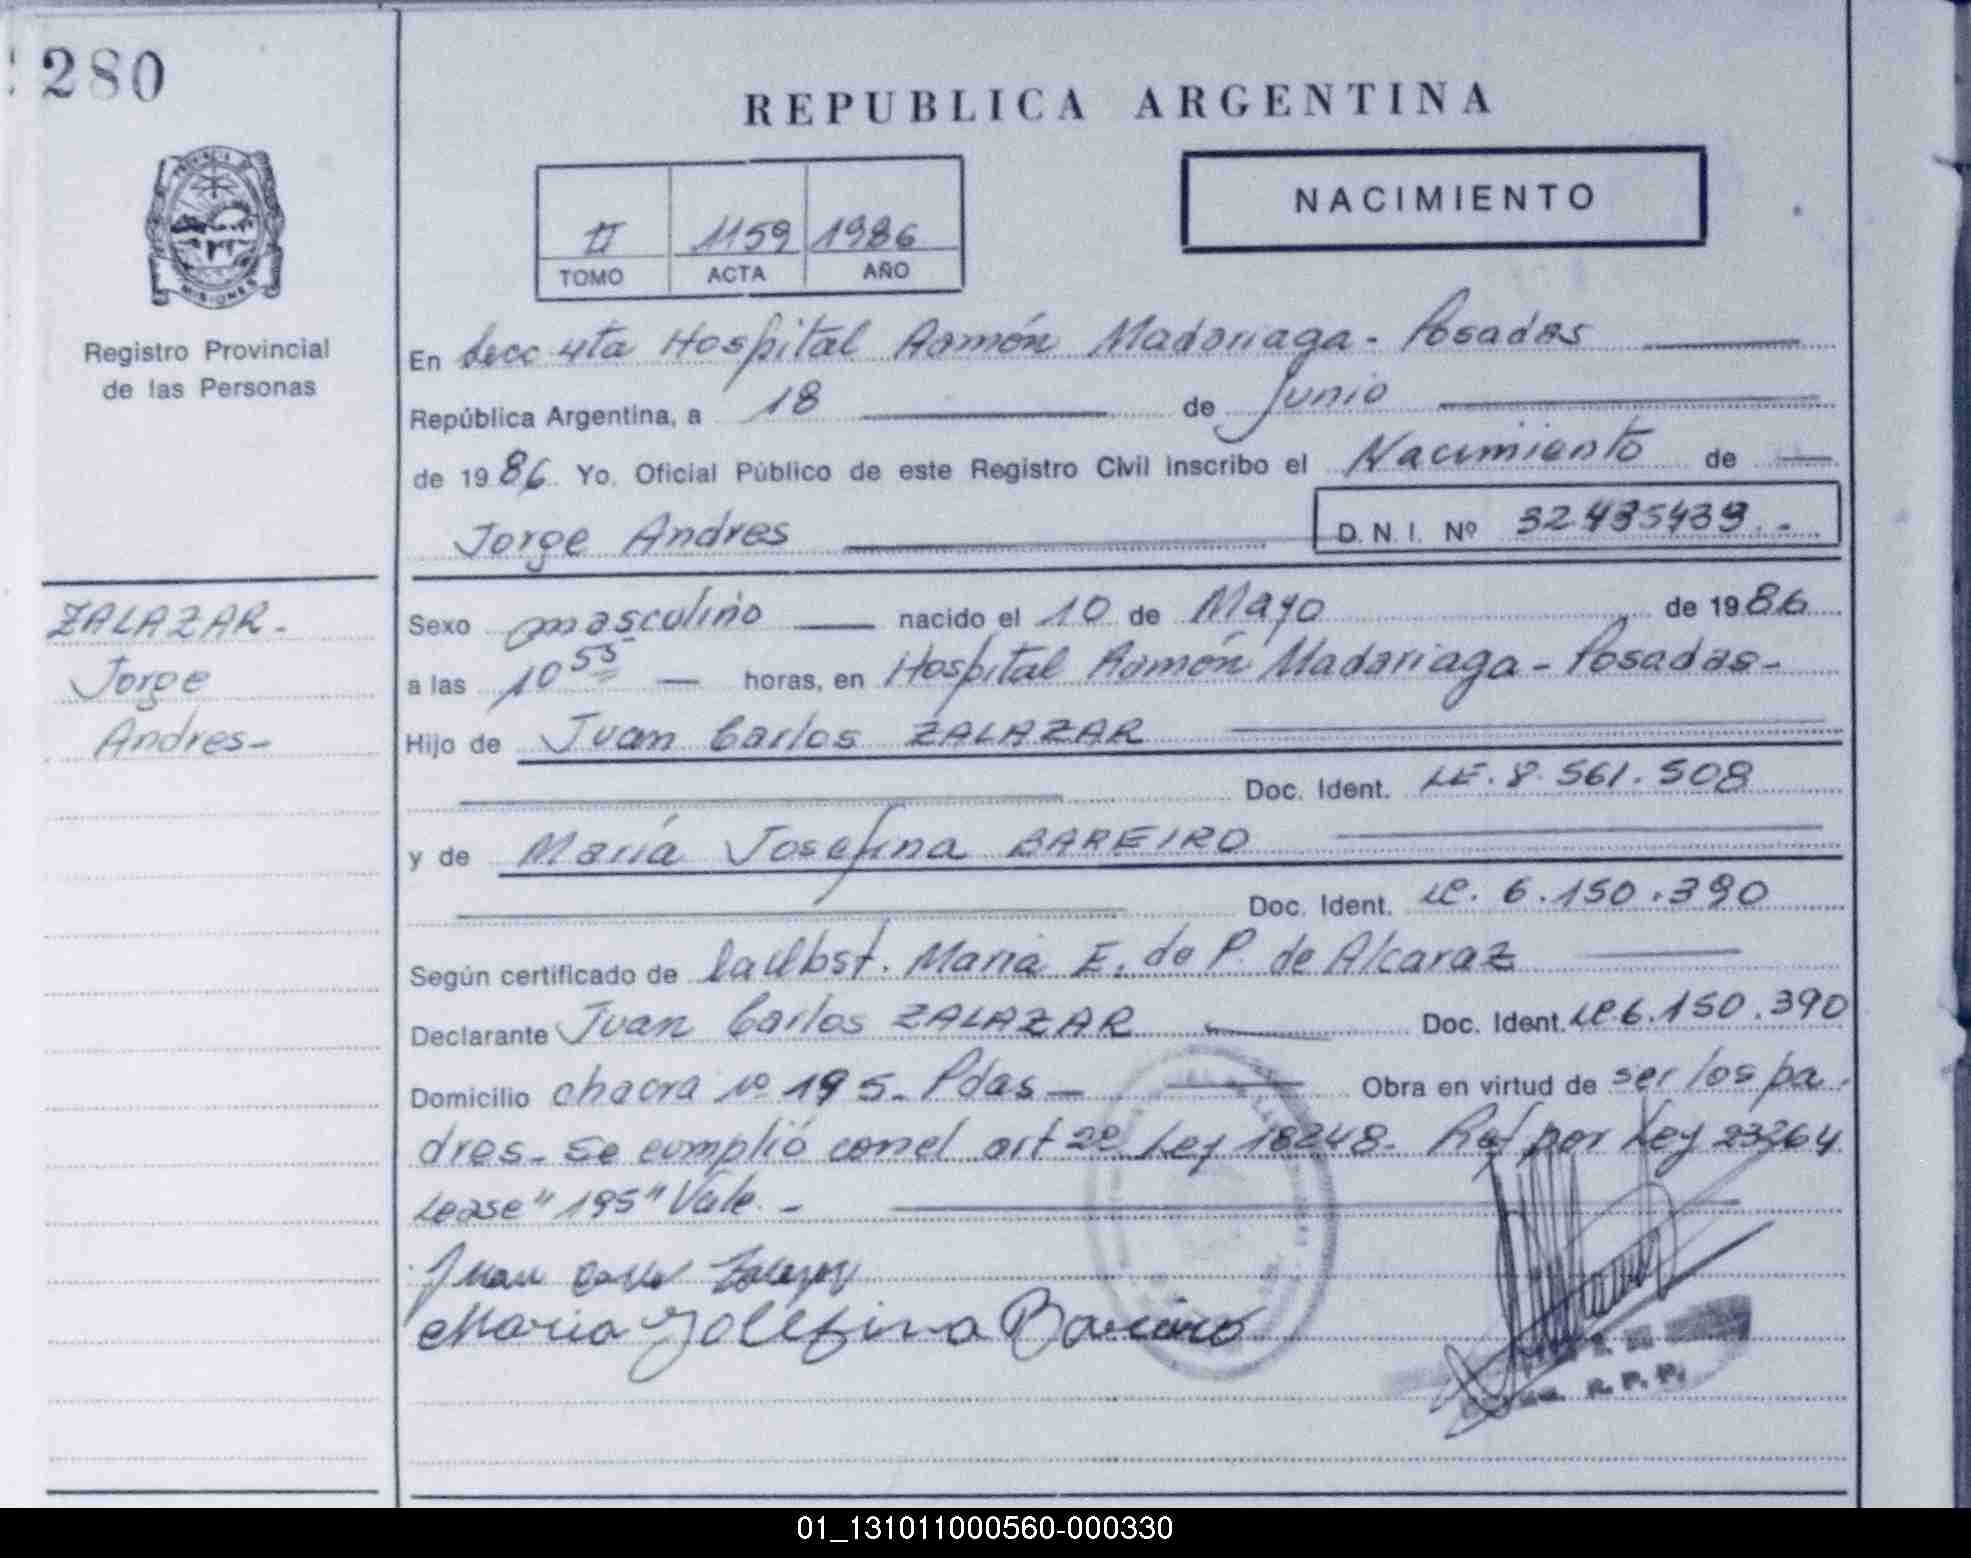 280
REPUBLICA ARGENTINA
NACIMIENTO
II 1159 1986
TOMO ACTA AÑO
PROVINCIA DE
MISIONES
Registro Provincial
de las Personas
En Secc 4ta Hospital Ramón Madariaga - Posadas
República Argentina, a 18 de Junio
de 1986. Yo, Oficial Público de este Registro Civil inscribo el Nacimiento de
Jorge Andres D.N.I. Nº 32.435439.-
ZALAZAR-
Jorge
Andres-
Sexo masculino nacido el 10 de Mayo de 1986
a las 10 55 horas, en Hospital Ramón Madariaga - Posadas-
Hijo de Juan Carlos ZALAZAR
Doc. Ident. LE. 8.561.508
y de María Josefina BAREIRO
Doc. Ident. LC. 6.150.390
Según certificado de la Obst. María E. de P. de Alcaraz
Declarante Juan Carlos ZALAZAR Doc. Ident. LC.6.150.390
Domicilio chacra Nº 195- Pdas- Obra en virtud de ser los pa-
dres- Se cumplió con el art 2º Ley 18248- Ref por Ley 23264
Lease "195" Vale.-
Juan Carlos Zalazar
Maria Josefina Bareiro
R. P. P.
01_131011000560-000330